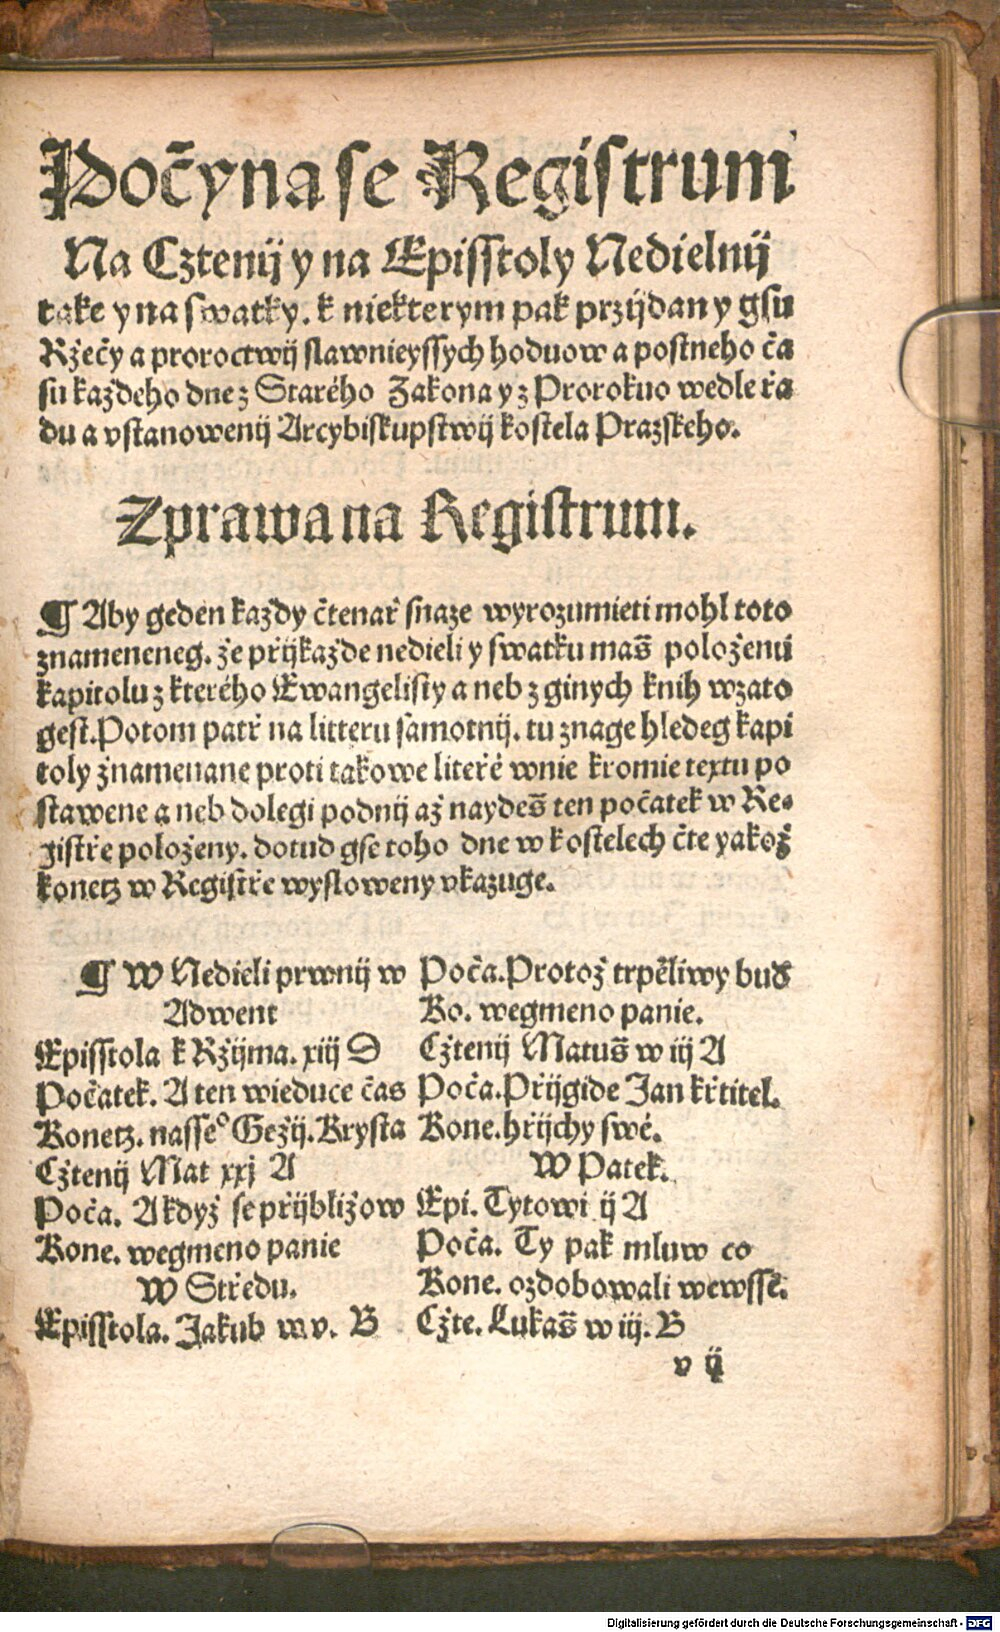 Počyna se Registrum
Na Cztenij y na Episstoly Nedielnij
take y na swatky. k niekterym pak przijdany gsu
Rżečy a proroctwij slawnieyssych hoduow a postneho ča
su każdeho dne z Starého Zakona y z Prorokuo wedle řa
du a vstanowenij Arcybiskupstwij kostela Prazskeho.
Zprawa na Registrum.
¶ Aby geden każdy čtenař snaze wyrozumieti mohl toto
znameneneg. że přijkażde nedieli y swatku mas̃ położenu
kapitolu z kterého Ewangelisty a neb z ginych knih wzato
gest. Potom patř na litteru samotnij. tu znage hledeg kapi
toly znamenane proti takowe liteřé wnie kromie textu po
stawene a neb dolegi podnij aż naydes̃ ten počatek w Re⸗
gistře położeny. dotud gse toho dne w kostelech čte yakoż
konetz w Registře wysloweny vkazuge.
¶ W Nedieli prwnij w
Adwent
Episstola k Rżijma. xiij D
Počatek. A ten wieduce čas
Konetz. nasse° Geżij. Krysta
Cżtenij Mat xxj A
Poča. A kdyż se přijbliżow
Kone. wegmeno panie
W Středu.
Episstola. Jakub w v. B
Poča. Protoż trpěliwy bud
Ko. wegmeno panie.
Cżtenij Matus̃ w iij A
Poča. Přijgide Jan křtitel.
Kone. hřijchy swé.
W Patek.
Epi. Tytowi ij A
Poča. Ty pak mluw co
Kone. ozdobowali wewssē.
Cżte. Lukas̃ w iij. B
v ij
Digitalisierung gefördert durch die Deutsche Forschungsgemeinschaft - DFG